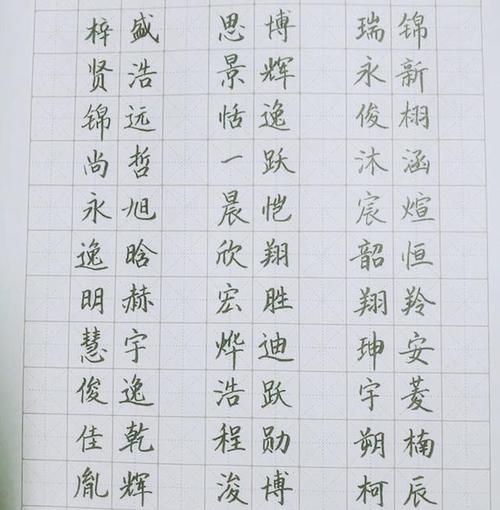 梓盛 思博 瑞锦
贤浩 景辉 永新
锦远 恬逸 俊栩
尚哲 一跃 沐涵
永旭 晨恺 宸煊
逸晗 欣翔 韶恒
明赫 宏胜 翔羚
慧宇 烨迪 珅安
俊逸 浩跃 宇菱
佳乾 程勋 朔楠
胤辉 浚博 柯辰